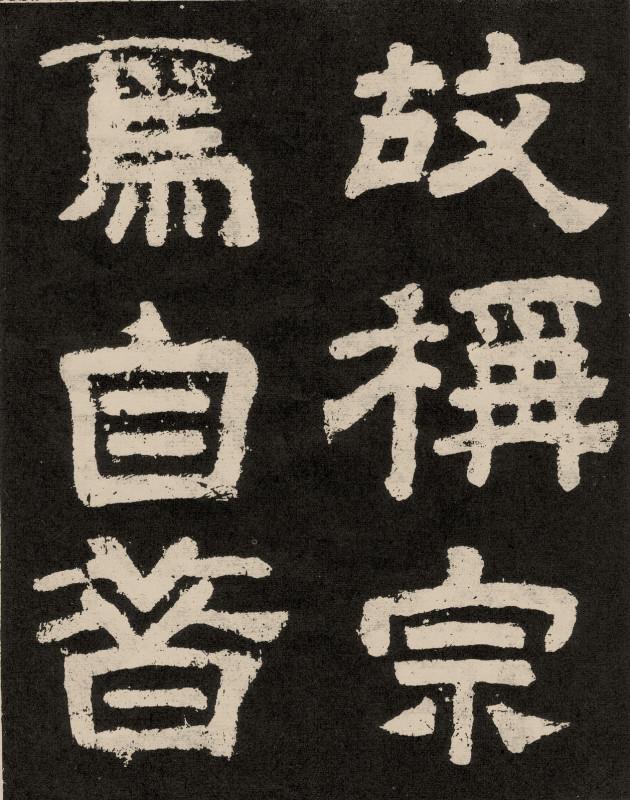 故稱宗
焉自昔